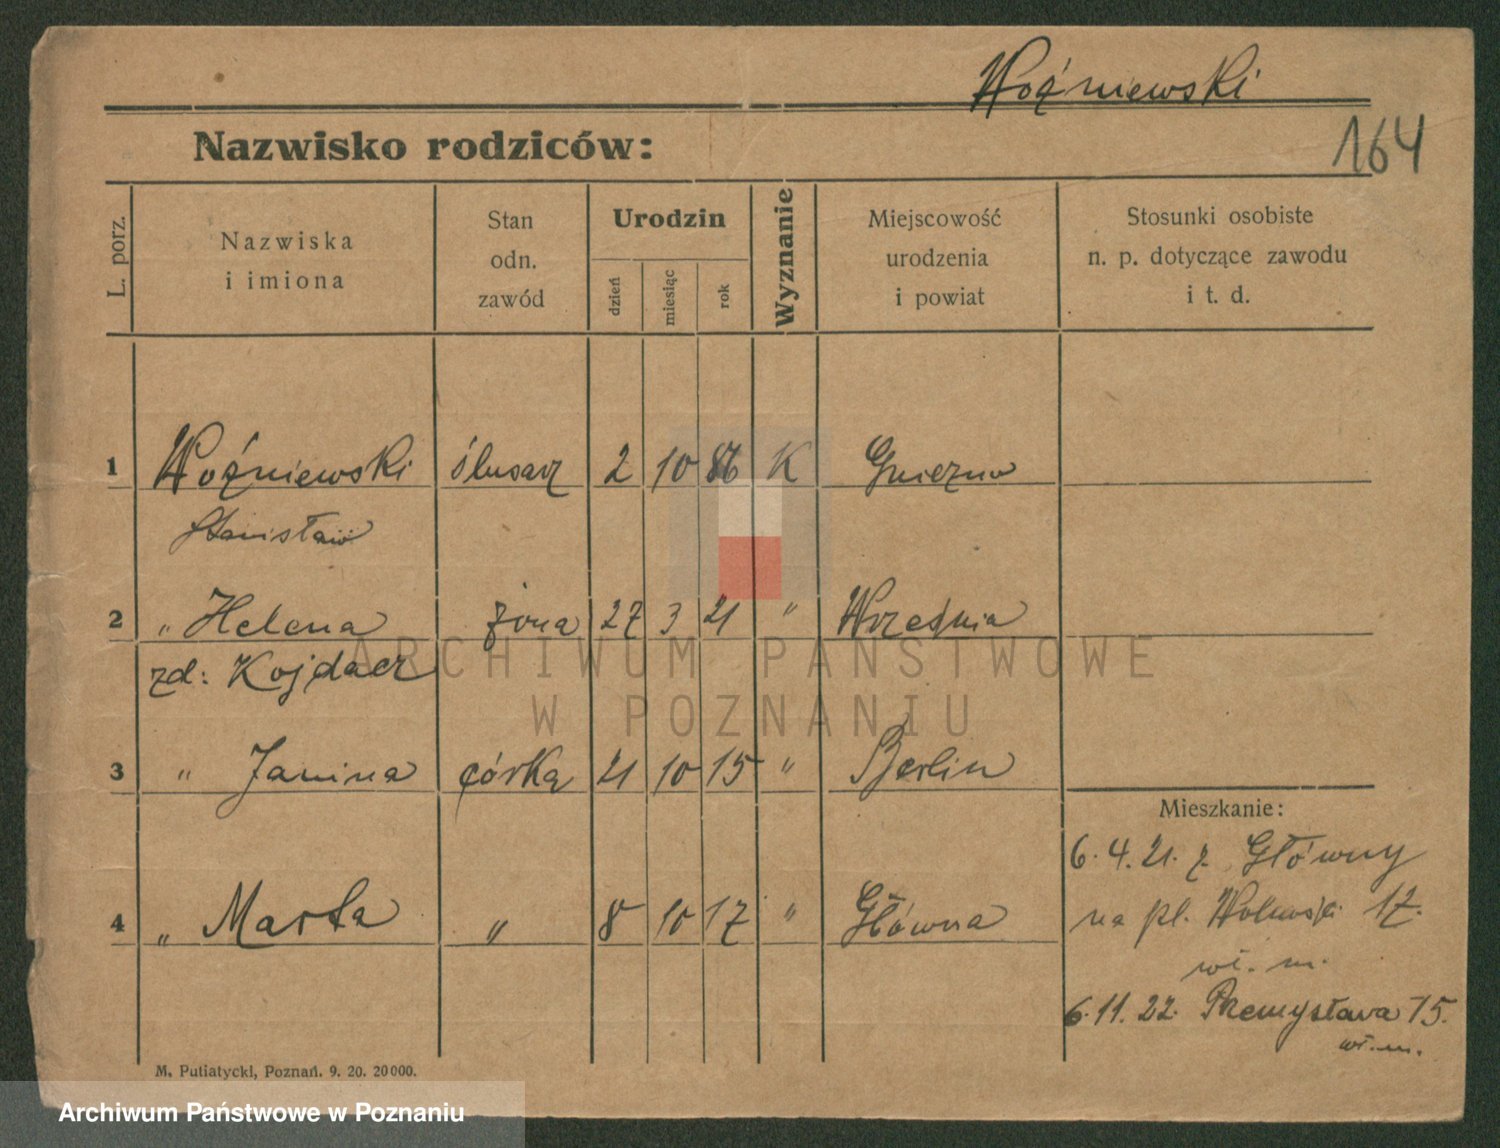 Woźniewski
164
Nazwisko rodziców:
L. porz.
Nazwiska
i imiona
Stan
odn.
zawód
Urodzin
dzień
miesiąc
rok
Wyznanie
Miejscowość
urodzenia
i powiat
Stosunki osobiste
n. p. dotyczące zawodu
i t. d.
1 Woźniewski ślusarz 2 10 86 K Gniezno
Stanisław
2 " Helena żona 27 3 21 " Września
zd: Kojdacz
3 " Janina córka 21 10 15 " Berlin
Mieszkanie:
6.4.21. z Główny
4 " Marta " 8 10 17 " Główna
na pl. 17.
wł. m.
6.11.22. Przemysława 15.
wł. m.
M. Putiatycki, Poznań. 9. 20. 20000.
ARCHIWUM PAŃSTWOWE
W POZNANIU
Archiwum Państwowe w Poznaniu